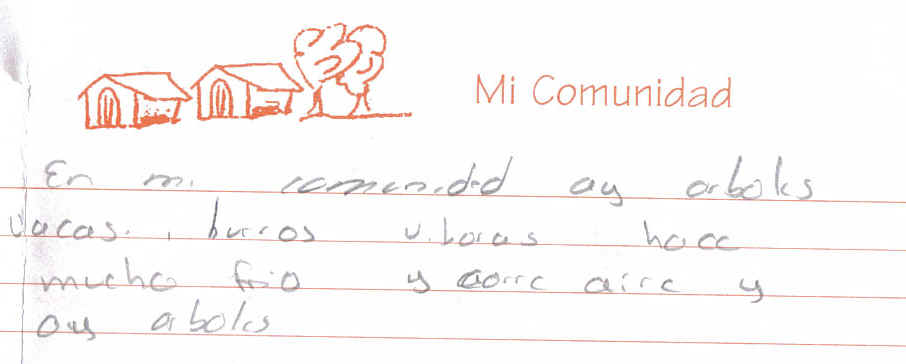 Mi Comunidad
En mi comunidad ay arboles
vacas, burros viboras hace
mucho frio y corre aire y
ay aboles